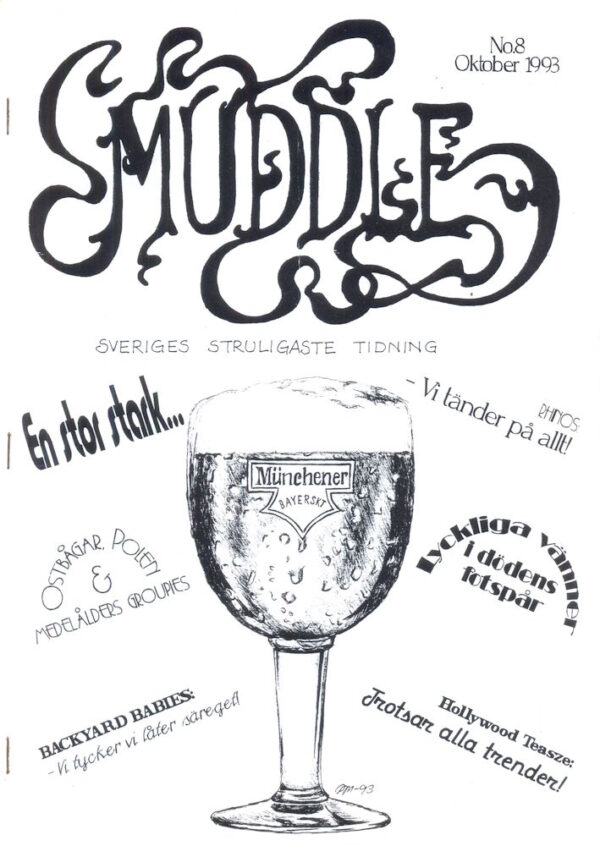 No.8
Oktober 1993
SMUDDLE
SVERIGES STRULIGASTE TIDNING
En stor stark...
RHINOS
- Vi tänder på allt!
Münchener
BAYERSKT
OSTBÅGAR, POLEN
&
MEDELÅLDERS GROUPIES
Lyckliga vänner
i dödens
fotspår
BACKYARD BABIES:
- Vi tycker vi låter säreget!
Hollywood Teasze:
Trotsar alla trender!
PM-93